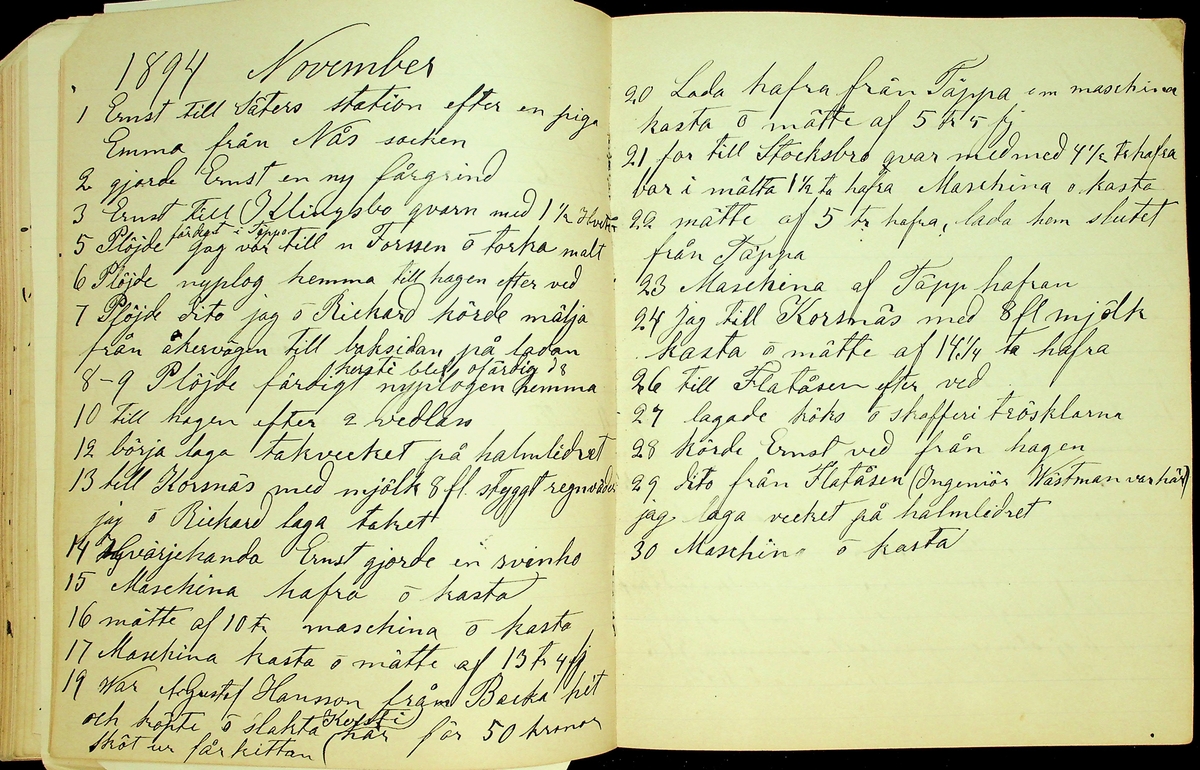 1894 November
1 Ernst till Säters station efter en piga
Emma från Nås socken
2 gjorde Ernst en ny fårgrind
3 Ernst till Klingsbo qvarn med 1 1/2
färkast i Täppa
5 Plöjde jag var till n Torssen ö torka malt
6 Plöjde nyplog hemma till hagen efter ved
7 Plöjde dito jag ö Rickard körde mälja
från åkervägen till baksidan på ladan
kersti blef ofärdig d 8
8-9 Plöjde färdigt nyplogen hemma
10 till hagen efter 2 vedlass
12 börja laga takvecket på halmlidret
13 till Korsnäs med mjölk 8 fl. styggt regnväder
jag ö Rickard laga taket
14 hvärjehanda Ernst gjorde en svinho
15 Maschina hafra ö kasta
16 mätte af 10 tr maschina ö kasta
17 Maschina kasta ö mätte af 13 tr 4 fj
19 War Agustaf Hansson från Backa hit
och köpte ö slakta Kersti här för 50 kronor
sköt ur fårkettan
20 Lada hafra från Täppa em maschina
kasta ö mätte af 5 tr 5 fj
21 for till Stocksbro qvar med med 4 1/2 tr hafra
var i mälta 1 1/2 ta hafra Maschina o kasta
22 mätte af 5 tr hafra, lada hem slutet
från Täppa
23 Maschina af Täpp hafran
24 jag till Korsnäs med 8 fl mjölk
kasta ö mätte af 14 1/4 ta hafra
26 till Flatåsen efter ved
27 lagade köks ö skafferi trösklarna
28 körde Ernst ved från hagen
29 dito från Flatåsen (Ingeniör Wastman var här)
jag laga vecket på halmlidret
30 Maschina ö kasta